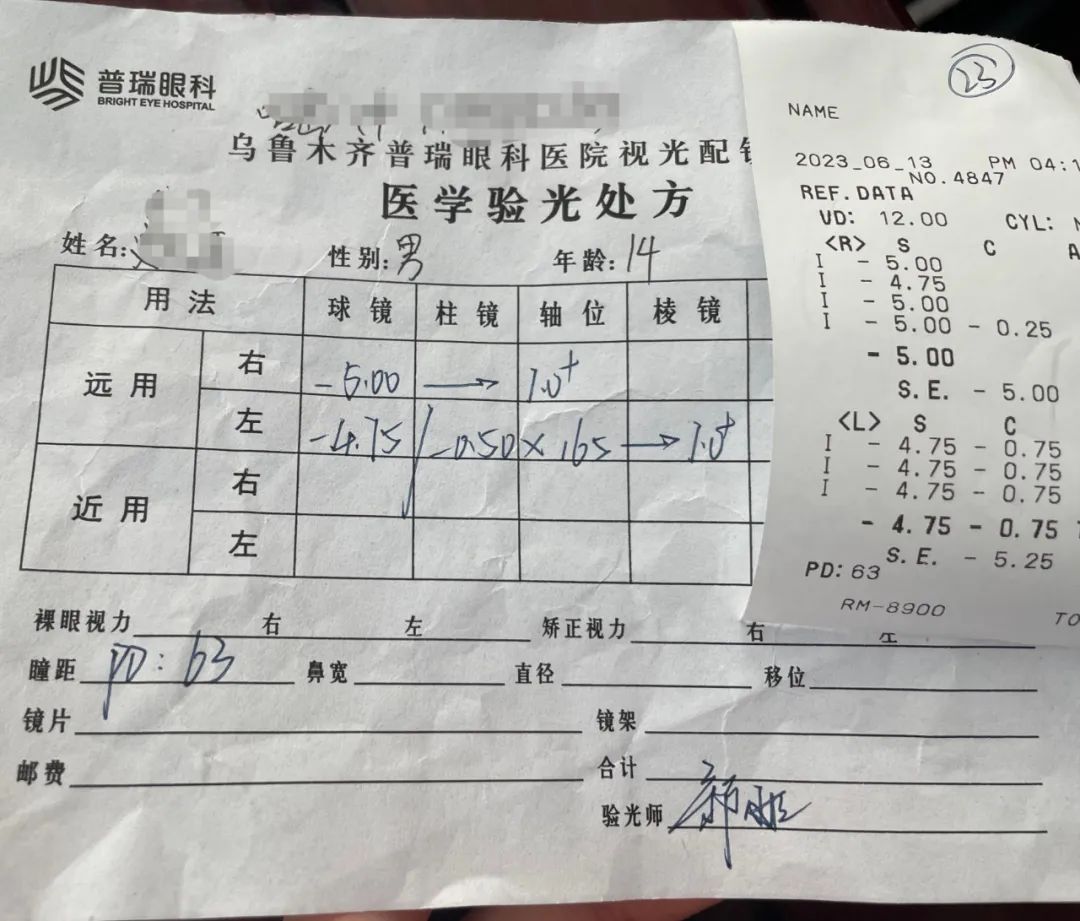 普瑞眼科
BRIGHT EYE HOSPITAL
乌鲁木齐普瑞眼科医院视光配
医学验光处方
姓名: 性别: 男 年龄: 14
用法 球镜 柱镜 轴位 棱镜
远用 右 -5.00 → 1.0+
左 -4.75 / -0.50 × 165 → 1.0+
近用 右
左
裸眼视力 右 左 矫正视力 右 左
瞳距 PD: 63 鼻宽 直径 移位
镜片 镜架
邮费 合计
验光师
23
NAME
2023_06_13 PM 04:1
NO.4847
REF.DATA
VD: 12.00 CYL:
<R> S C A
I - 5.00
I - 4.75
I - 5.00
I - 5.00 - 0.25
- 5.00
S.E. - 5.00
<L> S C
I - 4.75 - 0.75
I - 4.75 - 0.75
I - 4.75 - 0.75
- 4.75 - 0.75
S.E. - 5.25
PD: 63
RM-8900 TO